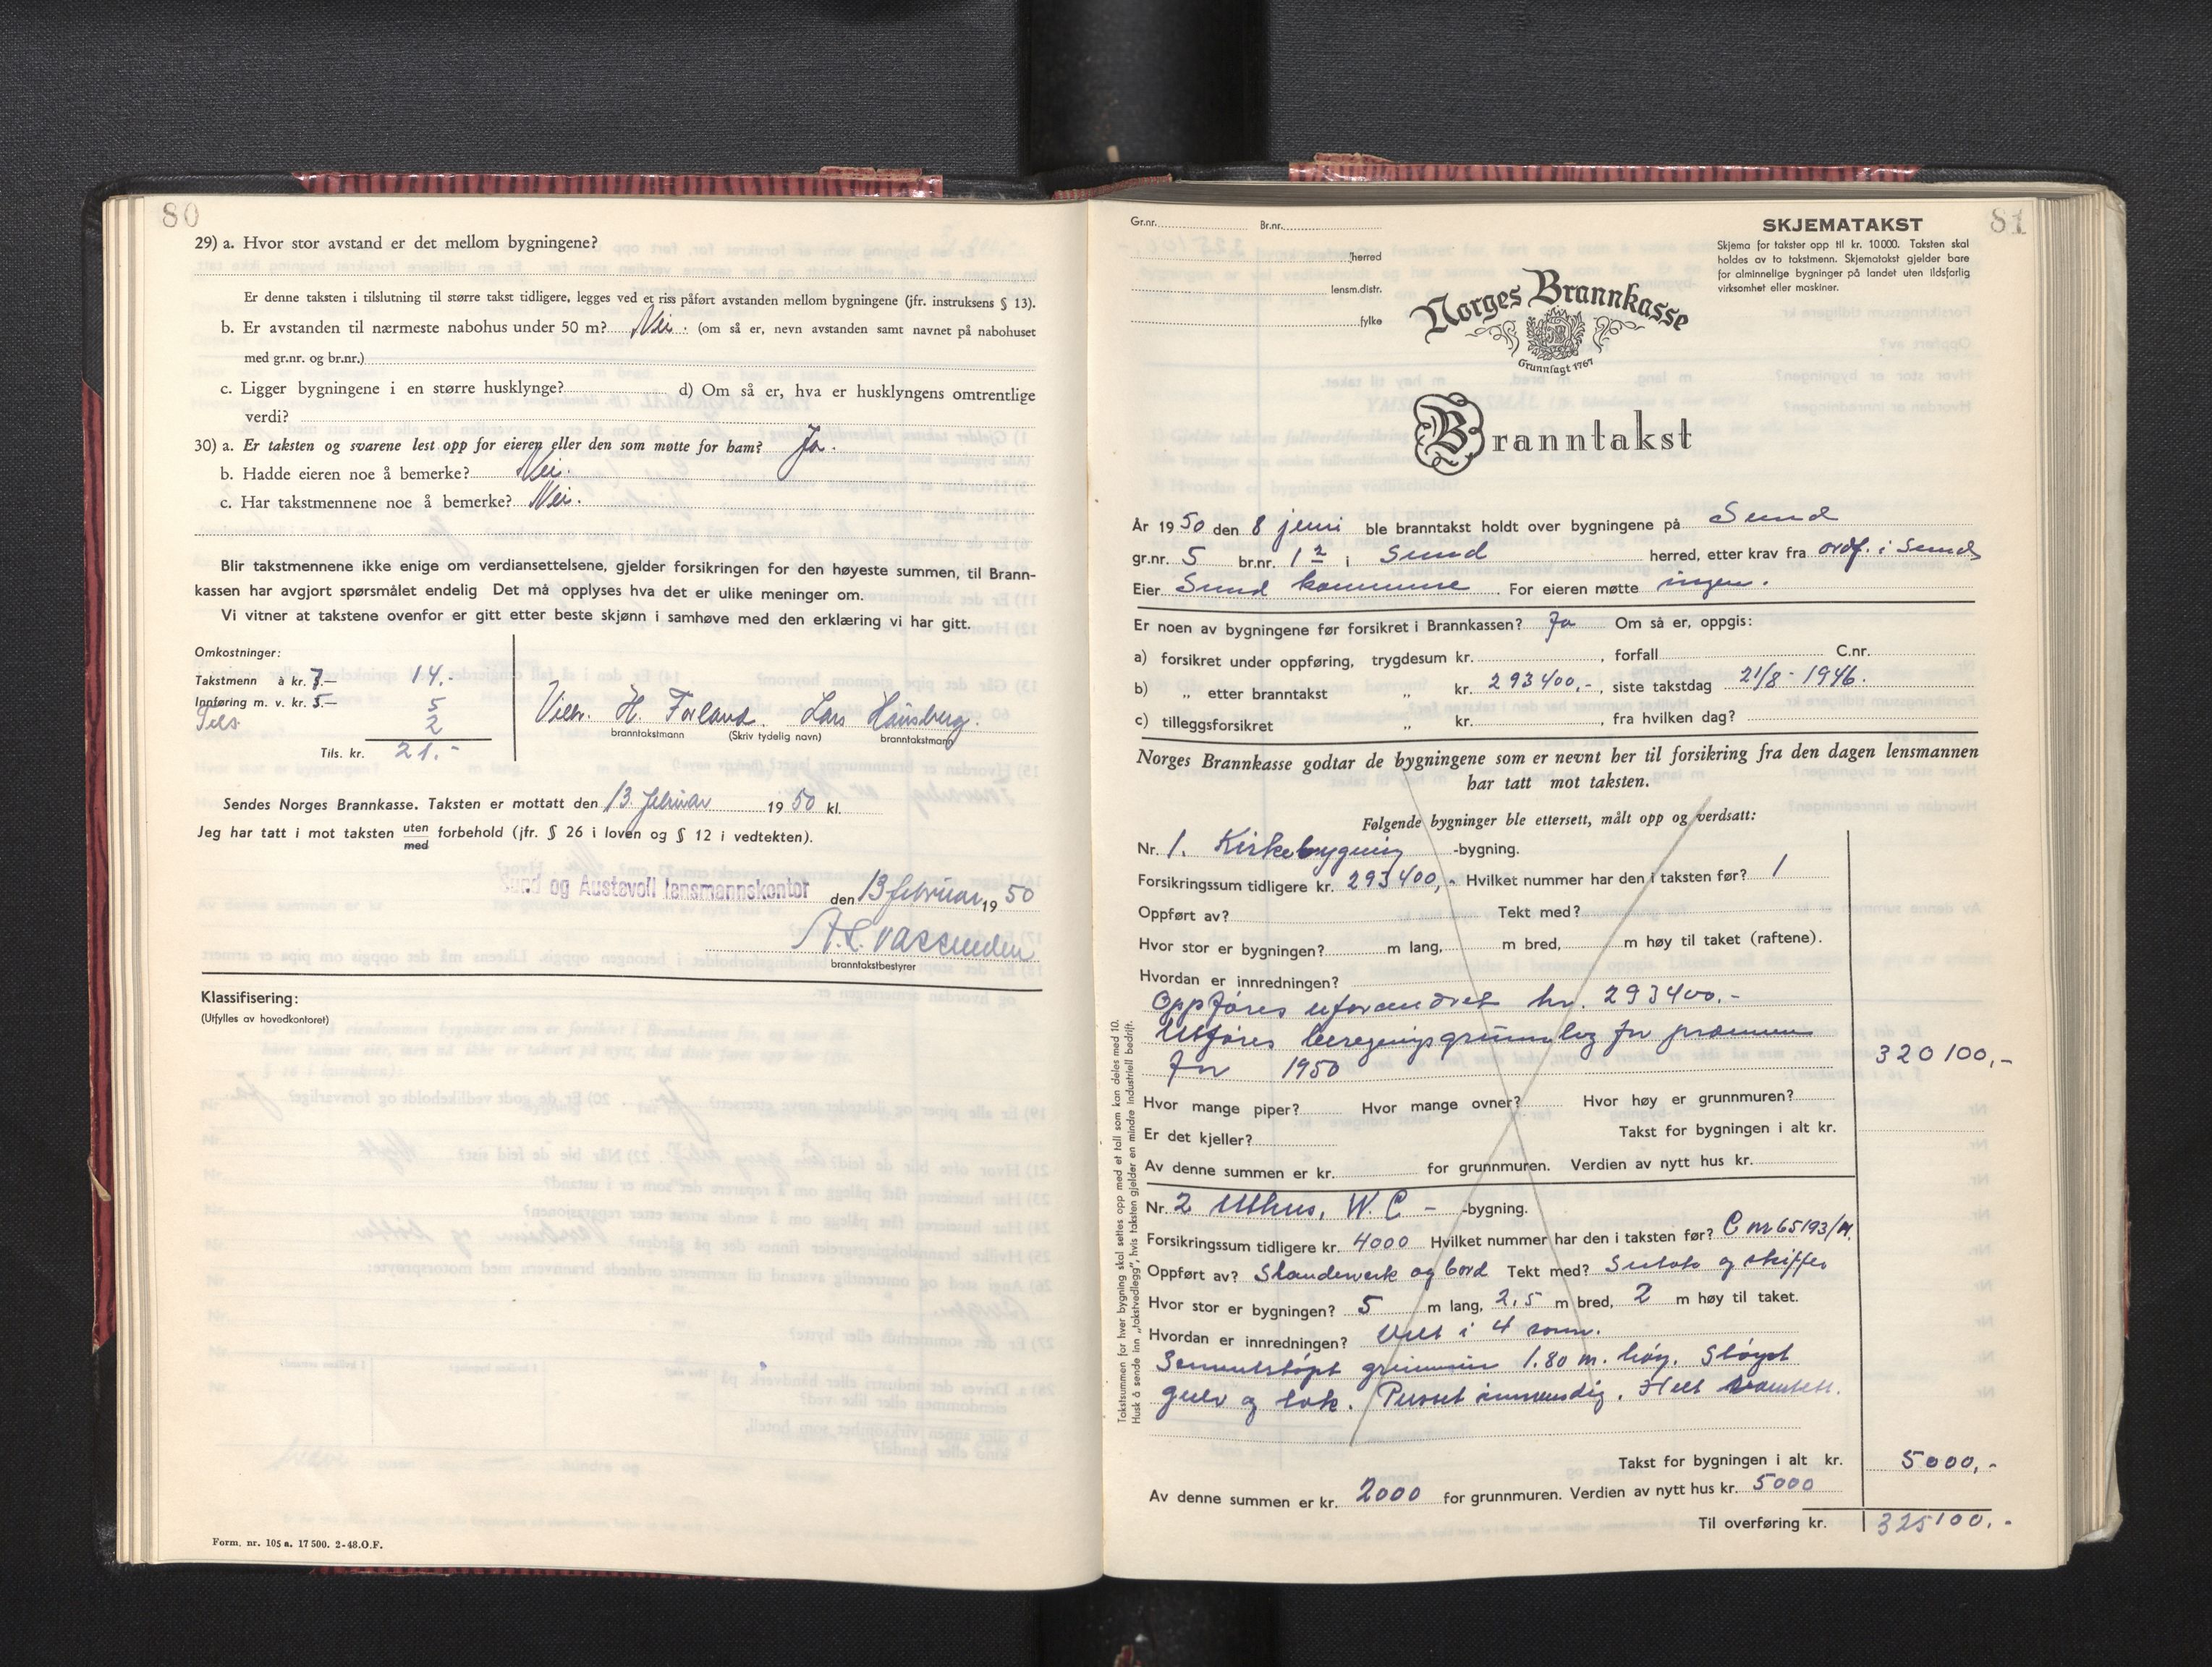 80
29) a. Hvor stor avstand er det mellom bygningene?
Er denne taksten i tilslutning til større takst tidligere, legges ved et riss påført avstanden mellom bygningene (jfr. instruksens § 13).
b. Er avstanden til nærmeste nabohus under 50 m? Nei. (om så er, nevn avstanden samt navnet på nabohuset
med gr.nr. og br.nr.)
c. Ligger bygningene i en større husklynge? d) Om så er, hva er husklyngens omtrentlige
verdi?
30) a. Er taksten og svarene lest opp for eieren eller den som møtte for ham? Ja.
b. Hadde eieren noe å bemerke? Nei.
c. Har takstmennene noe å bemerke? Nei.
Blir takstmennene ikke enige om verdiansettelsene, gjelder forsikringen for den høyeste summen, til Brann-
kassen har avgjort spørsmålet endelig Det må opplyses hva det er ulike meninger om.
Vi vitner at takstene ovenfor er gitt etter beste skjønn i samhøve med den erklæring vi har gitt.
Omkostninger:
Takstmenn à kr. 7.— 14.-
Innføring m. v. kr. 5.— 5
2
Tils. kr. 21.-
Vilh. H. Forland. Lars Hausberg.
branntakstmann (Skriv tydelig navn) branntakstmann
Sendes Norges Brannkasse. Taksten er mottatt den 13. februar 1950 kl.
Jeg har tatt i mot taksten uten forbehold (jfr. § 26 i loven og § 12 i vedtekten).
med
Sund og Austevoll lensmannskontor den 13 februar 1950
A.L. Vassenden
branntakstbestyrer
Klassifisering:
(Utfylles av hovedkontoret)
Form. nr. 105 a. 17 500. 2-48. O.F.
81
Gr.nr. Br.nr.
herred
lensm.distr.
fylke
SKJEMATAKST
Skjema for takster opp til kr. 10 000. Taksten skal
holdes av to takstmenn. Skjematakst gjelder bare
for alminnelige bygninger på landet uten ildsfarlig
virksomhet eller maskiner.
Norges Brannkasse
Grunnlagt 1767
Branntakst
År 1950 den 8 juni ble branntakst holdt over bygningene på Sund
gr.nr. 5 br.nr. 12 i Sund herred, etter krav fra ordf. i Sund
Eier Sund kommune. For eieren møtte ingen.
Er noen av bygningene før forsikret i Brannkassen? Ja Om så er, oppgis:
a) forsikret under oppføring, trygdesum kr. , forfall C.nr.
b) „ etter branntakst „ kr. 293400,-, siste takstdag 21/8-1946.
c) tilleggsforsikret „ kr. , fra hvilken dag?
Norges Brannkasse godtar de bygningene som er nevnt her til forsikring fra den dagen lensmannen
har tatt mot taksten.
Følgende bygninger ble ettersett, målt opp og verdsatt:
Nr. 1. Kirkebygning -bygning.
Forsikringssum tidligere kr. 293400,- Hvilket nummer har den i taksten før? 1
Oppført av? Tekt med?
Hvor stor er bygningen? m lang, m bred, m høy til taket (raftene).
Hvordan er innredningen?
Oppføres uforandret kr. 293400.-
Utføres beregningsgrunnlag for præmien
for 1950 320100,-
Hvor mange piper? Hvor mange ovner? Hvor høy er grunnmuren?
Er det kjeller? Takst for bygningen i alt kr.
Av denne summen er kr. for grunnmuren. Verdien av nytt hus kr.
Nr. 2 Uthus, W. C - -bygning.
Forsikringssum tidligere kr. 4000 Hvilket nummer har den i taksten før? C nr 65193/M.
Oppført av? Standerverk og bord Tekt med? Sutak og skiffer
Hvor stor er bygningen? 5 m lang, 2,5 m bred, 2 m høy til taket.
Hvordan er innredningen? Delt i 4 rom.
Sementstøpt grunnmur 1.80 m. høg. Støypt
gulv og tak. Pusset innvendig.
Takst for bygningen i alt kr. 5000,-
Av denne summen er kr. 2000 for grunnmuren. Verdien av nytt hus kr. 5000
Til overføring kr. 325100.-
Takstsummen for hver bygning skal settes opp med et tall som kan deles med 10.
Husk å sende inn „takstvedlegg", hvis taksten gjelder en mindre industriell bedrift.